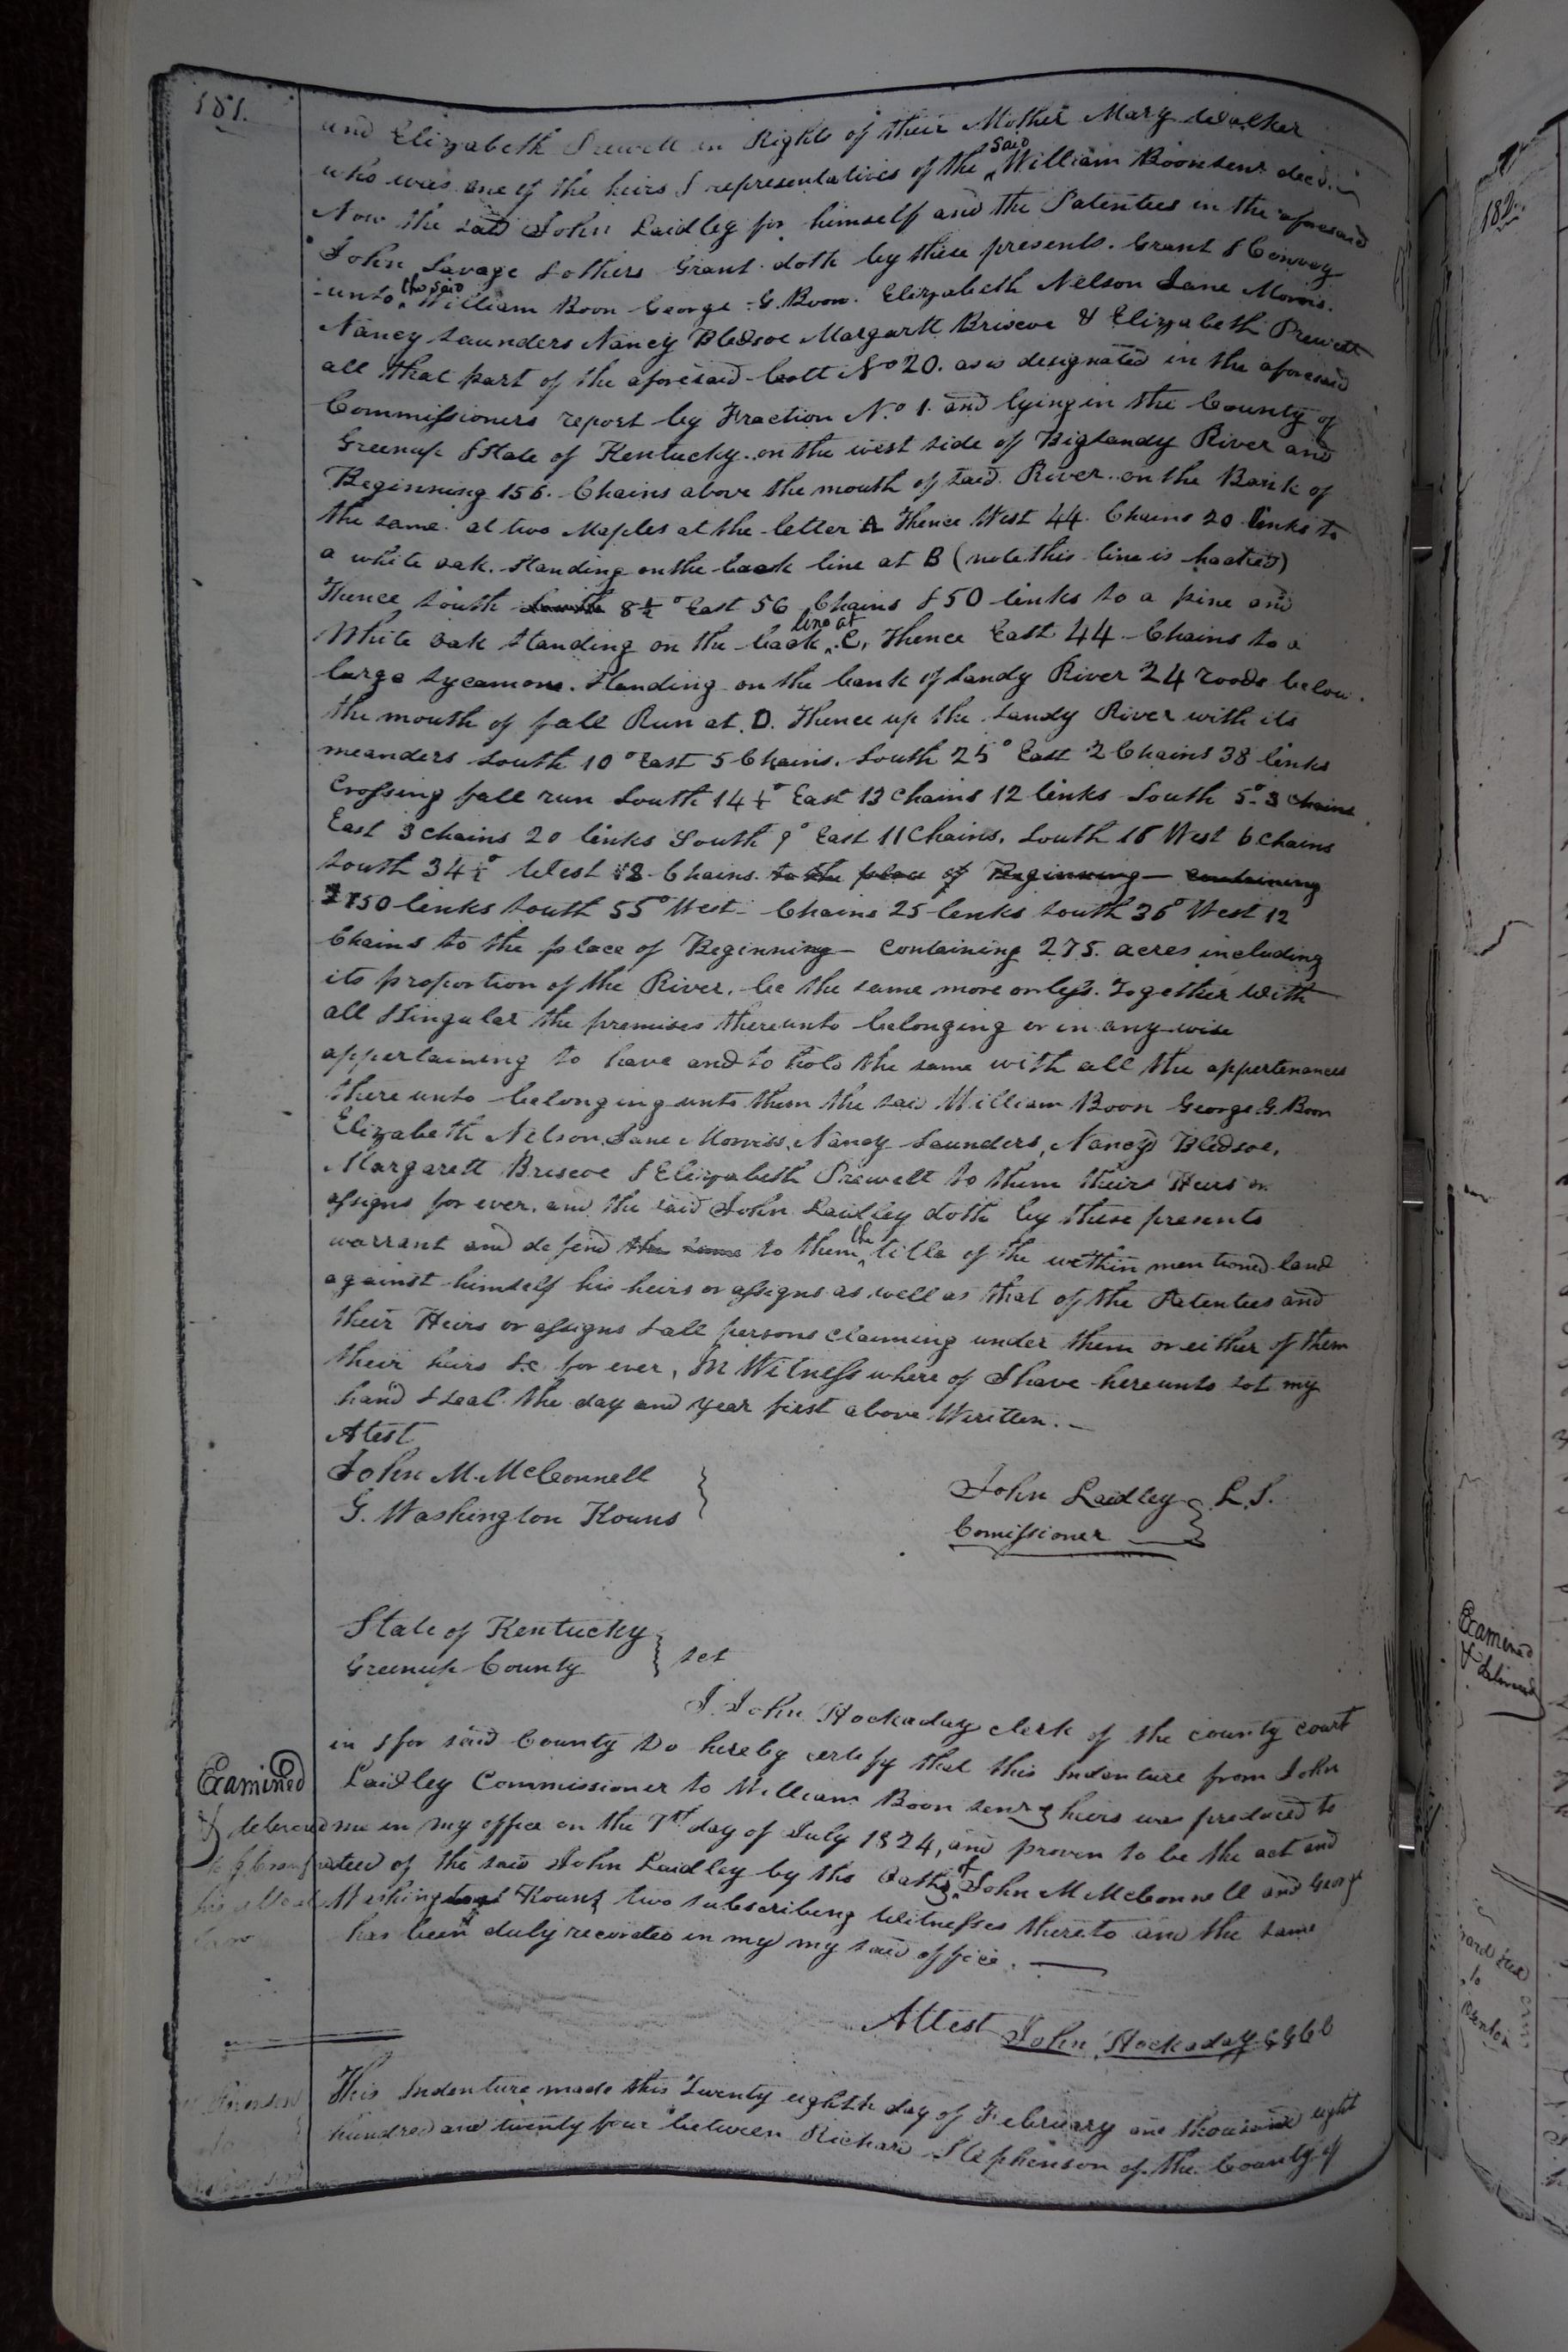 181.
and Elizabeth Prewett in Rights of their Mother Mary Walker
who was one of the heirs & representatives of the said William Boon senr decd.
Now the said John Laidley for himself and the Patentees in the aforesaid
John Savage & others Grant doth by these presents. Grant & Convey
unto the said William Boon George G. Boon. Elizabeth Nelson Jane Morris.
Nancy Saunders Nancy Bledsoe Margarett Briscoe & Elizabeth Prewett
all that part of the aforesaid Lott No 20. as is designated in the aforesaid
Commissioners report by Fraction No. 1. and lying in the County of
Greenup & State of Kentucky. on the west side of Bigsandy River and
Beginning 156. Chains above the mouth of said River. on the Bank of
the same. at two Maples at the letter A Thence West 44. Chains 20 links to
a white oak. standing on the back line at B (note this line is hacked)
Thence South South 8½° East 56 Chains & 50 links to a pine and
White oak standing on the back line at C, Thence East 44 Chains to a
large Sycamore. standing on the bank of Sandy River 24 roods below.
the mouth of fall Run at D. Thence up the Sandy River with its
meanders South 10° East 5 Chains. South 25° East 2 Chains 38 links
Crossing fall run South 14½° East 13 Chains 12 links South 5° 3 chains
East 3 chains 20 links South 9° East 11 Chains. South 16 West 6 Chains
South 34½° West 12 Chains to the place of Beginning — containing
50 links South 55° West - Chains 25 links South 36° West 12
Chains to the place of Beginning — Containing 275. acres including
its proportion of the River. be the same more or less. Together with
all & singular the premises thereunto belonging or in any wise
appertaining to have and to hold the same with all the appertenances
there unto belonging unto them the said William Boon George G. Boon
Elizabeth Nelson, Jane Morriss, Nancy Saunders, Nancy Bledsoe,
Margarett Briscoe & Elizabeth Prewett to them their Heirs or
assigns for ever. and the said John Laidley doth by these presents
warrant and defend the same to them the title of the within mentioned land
against himself his heirs or assigns as well as that of the Patentees and
their Heirs or assigns & all persons claiming under them or either of them
their heirs &c for ever, In Witness where of I have hereunto set my
hand & seal the day and year first above Written. —
Atest
John M. McConnell
G. Washington Kouns
John Laidley L.S.
Comissioner
State of Kentucky
Greenup County
sct
I John Hockaday clerk of the county court
in & for said County do hereby certify that this Indenture from John
Laidley Commissioner to William Boon senr heirs was produced to
me in my office on the 7th day of July 1824, and proven to be the act and
deed of the said John Laidley by the oaths of John M McConnell and George
Washington Kouns two subscribing Witnesses thereto and the same
has been duly recorded in my my said office. —
Examined
&
Attest John Hockaday
This Indenture made this Twenty eighth day of February one thousand eight
hundred and twenty four between Richard Stephenson of the County of
182.
Examined
& delivered
to